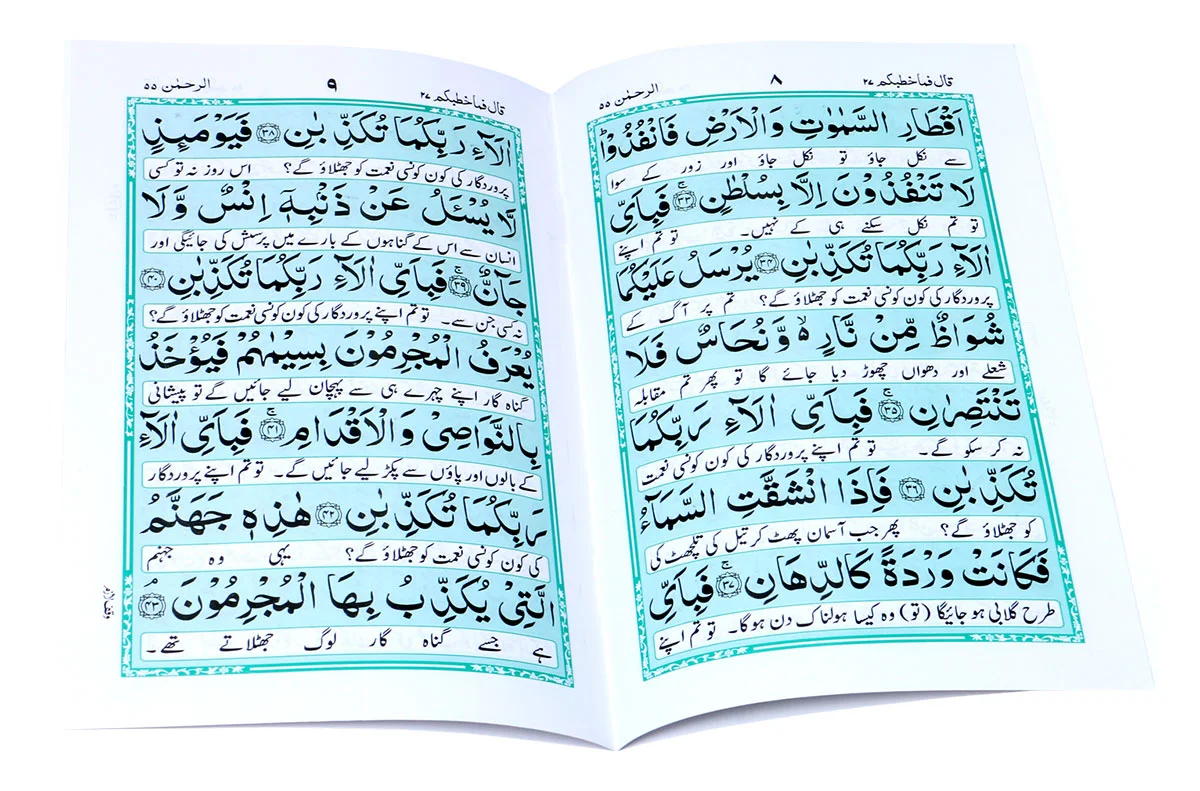 قال فما خطبكم ٢٧
٨
الرحمٰن ٥٥
اَقْطَارِ السَّمٰوٰتِ وَالْاَرْضِ فَانْفُذُوْاؕ
سے نکل جاؤ تو نکل جاؤ اور زور کے سوا
لَا تَنْفُذُوْنَ اِلَّا بِسُلْطٰنٍۚ ﴿٣٣﴾ فَبِاَيِّ
تو تم نکل سکنے ہی کے نہیں۔ تو تم اپنے
اٰلَآءِ رَبِّكُمَا تُكَذِّبٰنِ ﴿٣٤﴾ يُرْسَلُ عَلَيْكُمَا
پروردگار کی کون کونسی نعمت کو جھٹلاؤ گے؟ تم پر آگ کے
شُوَاظٌ مِّنْ نَّارٍ ۙ۬ وَّنُحَاسٌ فَلَا
شعلے اور دھواں چھوڑ دیا جائے گا تو پھر تم مقابلہ
تَنْتَصِرٰنِۚ ﴿٣٥﴾ فَبِاَيِّ اٰلَآءِ رَبِّكُمَا
نہ کر سکو گے۔ تو تم اپنے پروردگار کی کون کونسی نعمت
تُكَذِّبٰنِ ﴿٣٦﴾ فَاِذَا انْشَقَّتِ السَّمَآءُ
کو جھٹلاؤ گے؟ پھر جب آسمان پھٹ کر تیل کی تلچھٹ کی
فَكَانَتْ وَرْدَةً كَالدِّهَانِۚ ﴿٣٧﴾ فَبِاَيِّ
طرح گلابی ہو جائیگا (تو) وہ کیسا ہولناک دن ہوگا۔ تو تم اپنے
قال فما خطبكم ٢٧
٩
الرحمٰن ٥٥
اٰلَآءِ رَبِّكُمَا تُكَذِّبٰنِ ﴿٣٨﴾ فَيَوْمَئِذٍ
پروردگار کی کون کونسی نعمت کو جھٹلاؤ گے؟ اس روز نہ تو کسی
لَّا يُسْـَٔلُ عَنْ ذَنْۢبِهٖٓ اِنْسٌ وَّلَا
انسان سے اس کے گناہوں کے بارے میں پرسش کی جائیگی اور
جَآنٌّۚ ﴿٣٩﴾ فَبِاَيِّ اٰلَآءِ رَبِّكُمَا تُكَذِّبٰنِ ﴿٤٠﴾
نہ کسی جن سے۔ تو تم اپنے پروردگار کی کون کونسی نعمت کو جھٹلاؤ گے؟
يُعْرَفُ الْمُجْرِمُوْنَ بِسِيْمٰهُمْ فَيُؤْخَذُ
گناہ گار اپنے چہرے ہی سے پہچان لیے جائیں گے تو پیشانی
بِالنَّوَاصِيْ وَالْاَقْدَامِۚ ﴿٤١﴾ فَبِاَيِّ اٰلَآءِ
کے بالوں اور پاؤں سے پکڑ لیے جائیں گے۔ تو تم اپنے پروردگار
رَبِّكُمَا تُكَذِّبٰنِ ﴿٤٢﴾ هٰذِهٖ جَهَنَّمُ
کی کون کونسی نعمت کو جھٹلاؤ گے؟ یہی وہ جہنم
الَّتِيْ يُكَذِّبُ بِهَا الْمُجْرِمُوْنَۘ ﴿٤٣﴾
ہے جسے گناہ گار لوگ جھٹلاتے تھے۔
وقف لازم